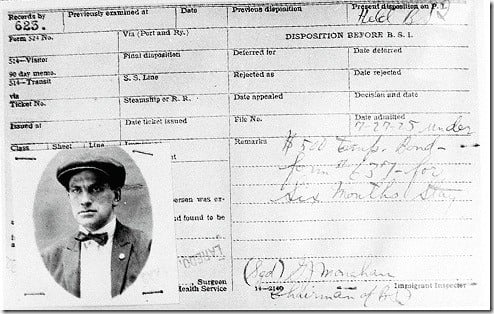 Records by Previously examined at Date Previous disposition Present disposition on P. I.
623. Held B.S.I.
Form 524 No. Via (Port and Ry.) DISPOSITION BEFORE B. S. I.
514—Visitor Final disposition Deferred for Date deferred
90 day memo.
514—Transit S. S. Line Rejected as Date rejected
via
Ticket No. Steamship or R. R. Date appealed Decision and date
Issued at Date ticket issued File No. Date admitted
7-27-25 under
Class Sheet Line Remarks $500 Temp. Bond—
form # 637—for
Six Months Stay
erson was ex-
d found to be
LAREDO
(Sgd) Monahan
Surgeon Immigrant Inspector
ealth Service 14—2149 Chairman of B.S.I.